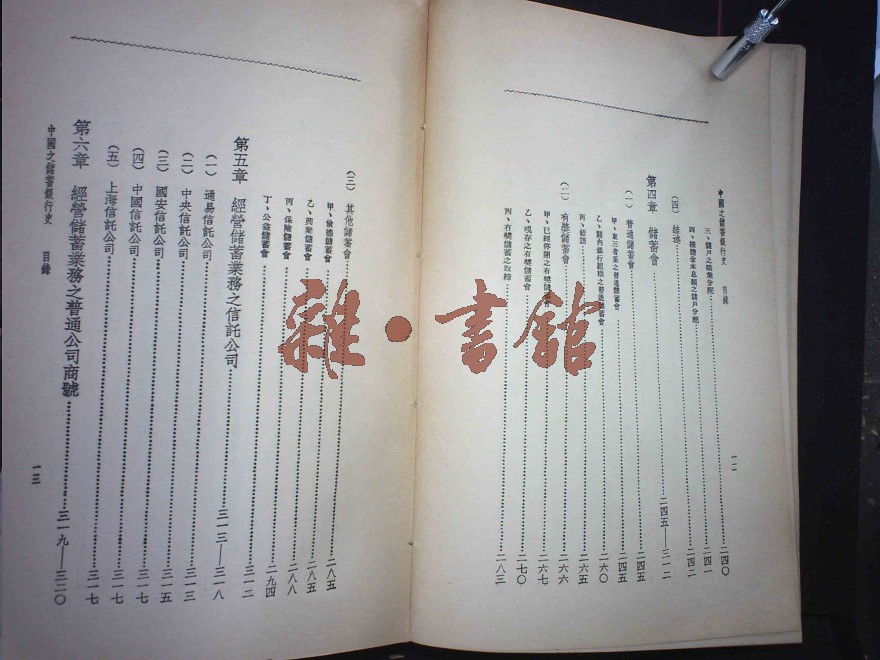 中國之儲蓄銀行史 目錄
三、儲戶之職業分配 二四〇
四、按儲金本息額之儲戶分配 二四一
(四) 結論 二四二
第四章 儲蓄會 二四五——三一二
(一) 普通儲蓄會 二四五
甲、東三省等之普通儲蓄會 二四五
乙、關內銀行組織之普通儲蓄會 二六〇
丙、結語 二六五
(二) 有獎儲蓄會 二六六
甲、已經停閉之有獎儲蓄會 二六七
乙、現存之有獎儲蓄會 二七〇
丙、有獎儲蓄之取締 二八三
一二
(三) 其他儲蓄會 二八五
甲、儉德儲蓄會 二八五
乙、興業儲蓄會 二八五
丙、保險儲蓄會 二八八
丁、公益儲蓄會 二九四
第五章 經營儲蓄業務之信託公司 三一三——三一八
(一) 通易信託公司 三一三
(二) 中央信託公司 三一三
(三) 國安信託公司 三一五
(四) 中國信託公司 三一七
(五) 上海信託公司 三一七
第六章 經營儲蓄業務之普通公司商號 三一九——三二〇
中國之儲蓄銀行史 目錄
一三
雜·書館